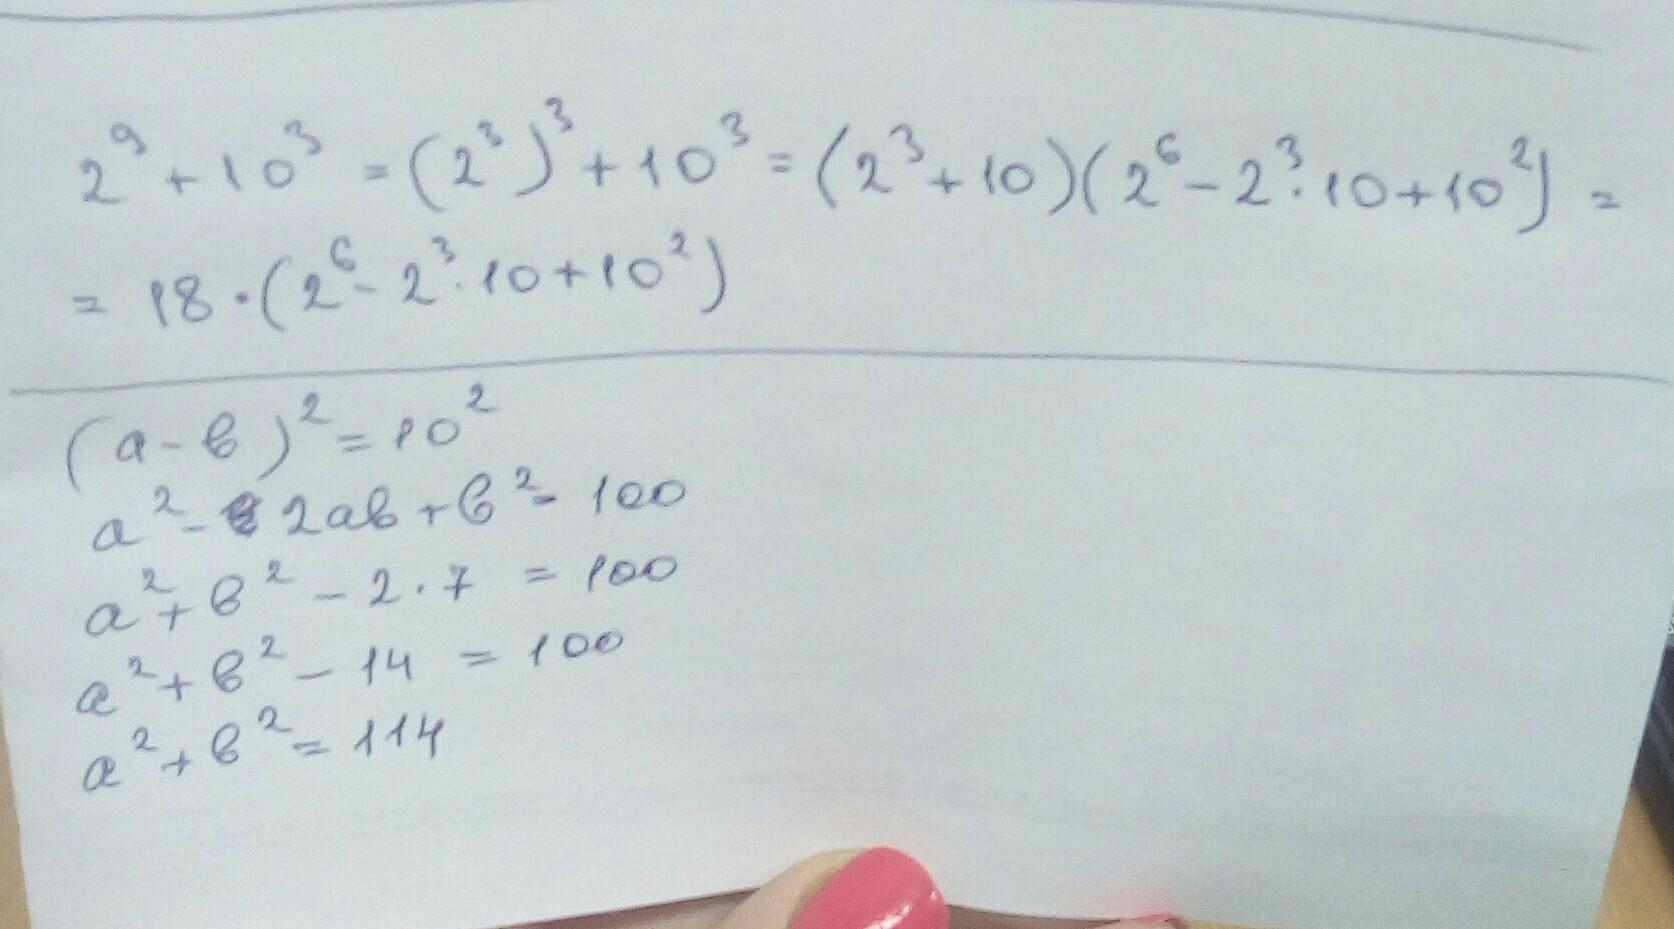 2⁹ + 10³ = (2³)³ + 10³ = (2³ + 10)(2⁶ - 2³ · 10 + 10²) =
= 18 · (2⁶ - 2³ · 10 + 10²)
(a - в)² = 10²
a² - 2aв + в² = 100
a² + в² - 2 · 7 = 100
a² + в² - 14 = 100
a² + в² = 114